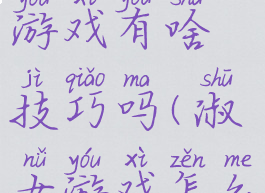 yóu xì yǒu shá
游戏有啥
jì qiǎo ma shū
技巧吗(淑
nǚ yóu xì zěn me
女游戏怎么